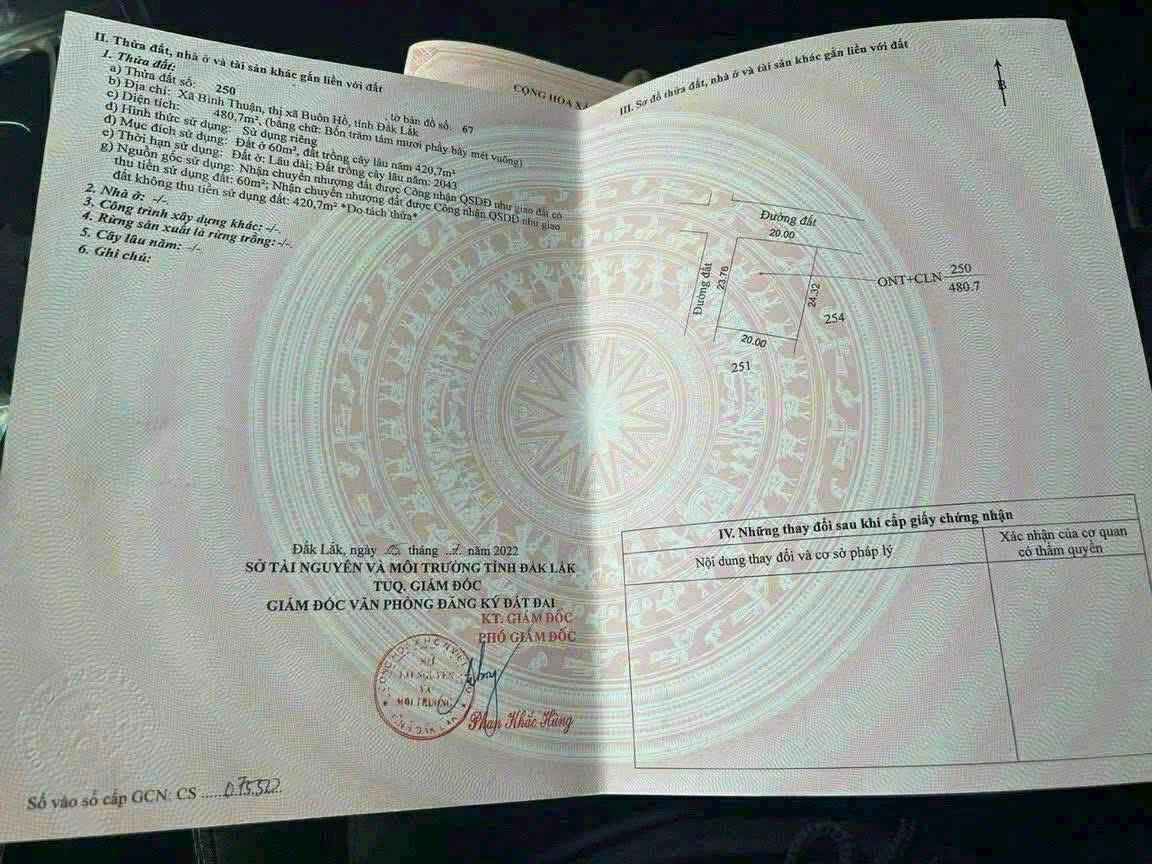 II. Thửa đất, nhà ở và tài sản khác gắn liền với đất
1. Thửa đất:
a) Thửa đất số: 250 , tờ bản đồ số: 67
b) Địa chỉ: Xã Bình Thuận, thị xã Buôn Hồ, tỉnh Đắk Lắk
c) Diện tích: 480,7m², (bằng chữ: Bốn trăm tám mươi phẩy bảy mét vuông)
d) Hình thức sử dụng: Sử dụng riêng
đ) Mục đích sử dụng: Đất ở 60m², đất trồng cây lâu năm 420,7m²
e) Thời hạn sử dụng: Đất ở: Lâu dài; Đất trồng cây lâu năm: 2043
g) Nguồn gốc sử dụng: Nhận chuyển nhượng đất được Công nhận QSDĐ như giao đất có
thu tiền sử dụng đất: 60m²; Nhận chuyển nhượng đất được Công nhận QSDĐ như giao
đất không thu tiền sử dụng đất: 420,7m² *Do tách thửa*
2. Nhà ở: -/-
3. Công trình xây dựng khác: -/-
4. Rừng sản xuất là rừng trồng: -/-
5. Cây lâu năm: -/-
6. Ghi chú:
Đắk Lắk, ngày tháng năm 2022
SỞ TÀI NGUYÊN VÀ MÔI TRƯỜNG TỈNH ĐẮK LẮK
TUQ. GIÁM ĐỐC
GIÁM ĐỐC VĂN PHÒNG ĐĂNG KÝ ĐẤT ĐAI
KT. GIÁM ĐỐC
PHÓ GIÁM ĐỐC
SỞ
TÀI NGUYÊN
VÀ
MÔI TRƯỜNG
Phan Khắc Hùng
Số vào sổ cấp GCN: CS ......075.522.
CỘNG HÒA XÃ
III. Sơ đồ thửa đất, nhà ở và tài sản khác gắn liền với đất
B
Đường đất
20.00
Đường đất
23.76
24.32
20.00
ONT+CLN 250
480.7
254
251
IV. Những thay đổi sau khi cấp giấy chứng nhận
Nội dung thay đổi và cơ sở pháp lý
Xác nhận của cơ quan
có thẩm quyền